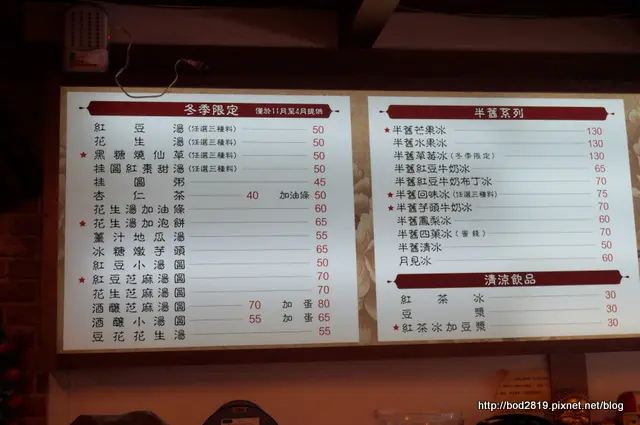 冬季限定 僅於11月至4月提供
紅豆湯(任選三種料) 50
花生湯(任選三種料) 50
★黑糖燒仙草(任選三種料) 50
桂圓紅棗甜湯(任選三種料) 50
桂圓粥 45
杏仁茶 40 加油條 50
花生湯加油條 60
★花生湯加泡餅 65
薑汁地瓜湯 55
冰糖燉芋頭 65
紅豆小湯圓 50
★紅豆芝麻湯圓 70
花生芝麻湯圓 70
酒釀芝麻湯圓 70 加蛋 80
酒釀小湯圓 55 加蛋 65
豆花花生湯 55
半舊系列
★半舊芒果冰 130
半舊水果冰 130
半舊草莓冰(冬季限定) 130
半舊紅豆牛奶冰 65
半舊紅豆牛奶布丁冰 70
★半舊回味冰(任選三種料) 75
★半舊芋頭牛奶冰 70
半舊鳳梨冰 60
半舊四菓冰(蜜餞) 70
半舊清冰 50
月見冰 60
清涼飲品
紅茶冰 30
豆漿 30
★紅茶冰加豆漿 30
http://bod2819.pixnet.net/blog